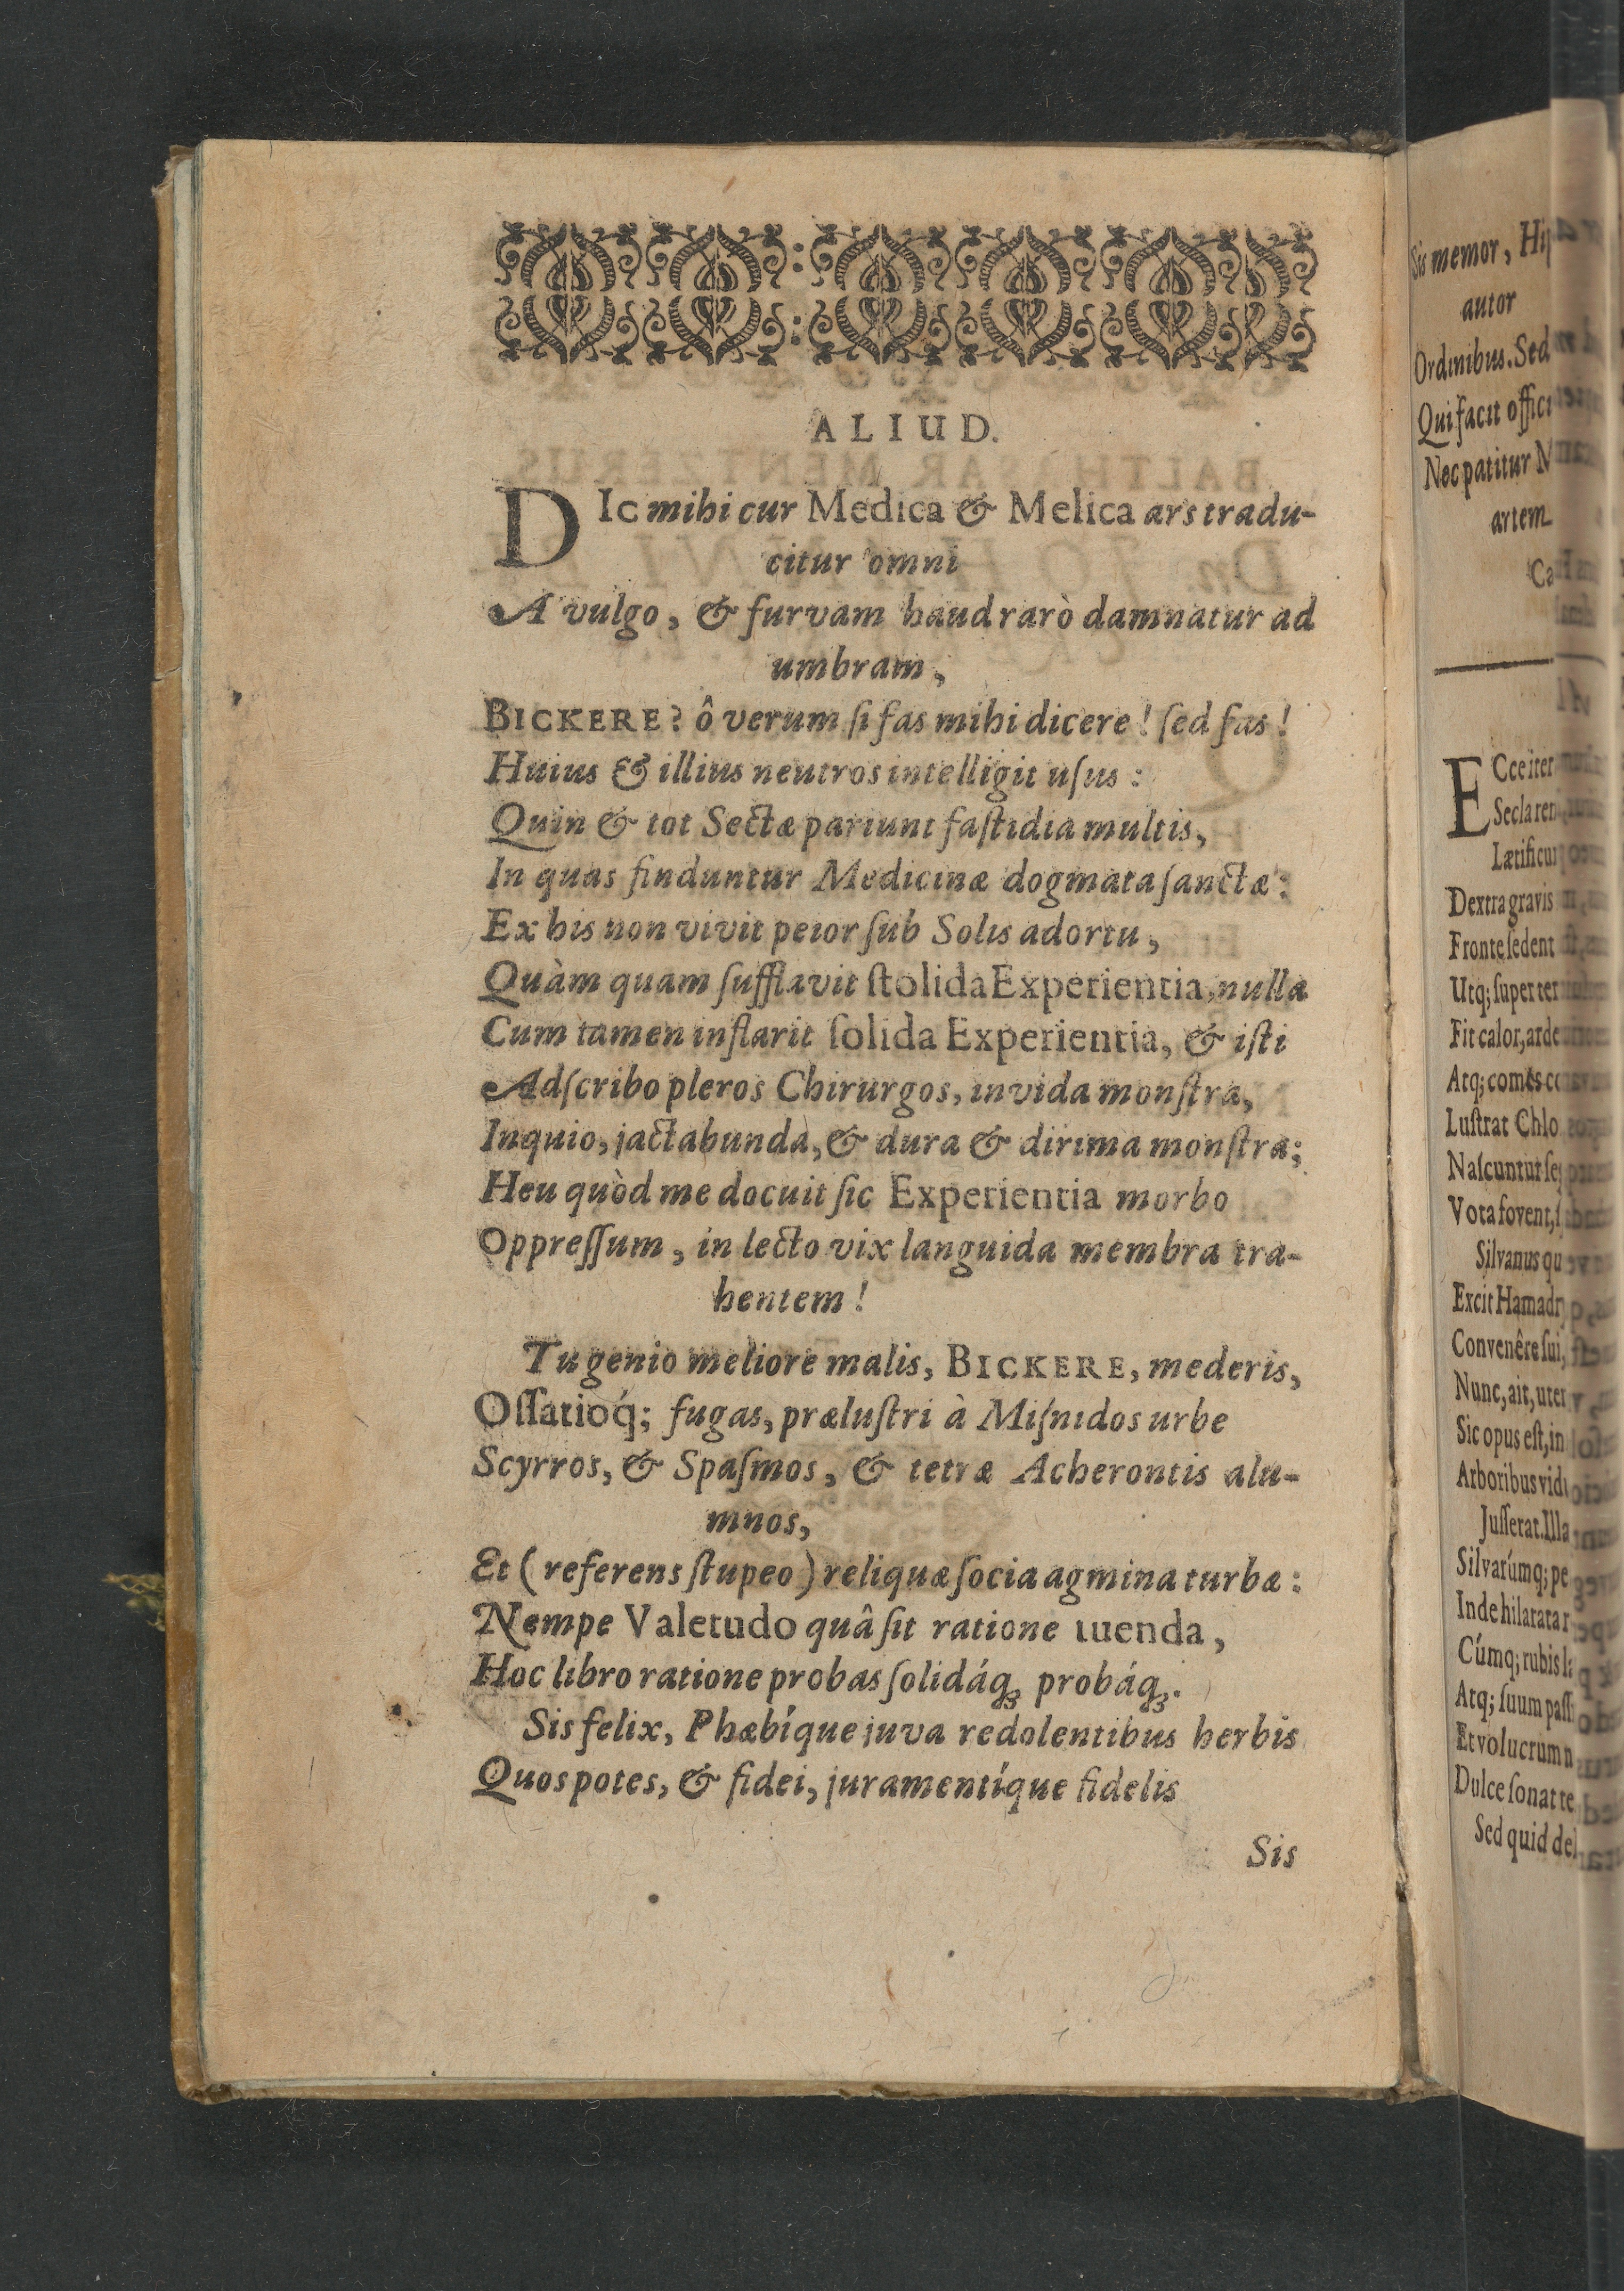 ALIUD.
DIc mihi cur Medica & Melica ars tradu-
citur omni
A vulgo, & furvam haud rarò damnatur ad
umbram,
BICKERE? ô verum ſi fas mihi dicere! ſed fas!
Huius & illius neutros intelligit uſus:
Quin & tot Sectæ pariunt faſtidia multis,
In quas finduntur Medicinæ dogmata ſanctæ:
Ex his non vivit peior ſub Solis adortu,
Quàm quam ſufflavit ſtolida Experientia, nulla
Cum tamen inflarit ſolida Experientia, & iſti
Adſcribo pleros Chirurgos, invida monſtra,
Inquio, jactabunda, & dura & dirima monſtra;
Heu quòd me docuit ſic Experientia morbo
Oppreſſum, in lecto vix languida membra tra-
hentem!
Tu genio meliore malis, BICKERE, mederis,
Oſſatioq́; fugas, præluſtri à Miſnidos urbe
Scyrros, & Spaſmos, & tetræ Acherontis alu-
mnos,
Et (referens ſtupeo) reliquæ ſocia agmina turbæ:
Nempe Valetudo quâ ſit ratione tuenda,
Hoc libro ratione probas ſolidáq; probáq;.
Sis felix, Phæbíque juva redolentibus herbis
Quos potes, & fidei, juramentíque fidelis
Sis
Sis memor, Hip
autor
Ordinibus. Sed
Qui facit offici
Nec patitur N
artem
Ca
ECce iter
Secla ren
Lætificu
Dextra gravis
Fronte ſedent
Utq; ſuper ter
Fit calor, arde
Atq; comes co
Luſtrat Chlo
Naſcuntur ſe
Vota fovent, ſ
Silvanus qu
Excit Hamadr
Convenêre ſui,
Nunc, ait, uter
Sic opus eſt, in
Arboribus vidu
Juſſerat. Illa
Silvarúmq; pe
Inde hilarata r
Cúmq; rubis la
Atq; ſuum paſſ
Et volucrum n
Dulce ſonat te
Sed quid del